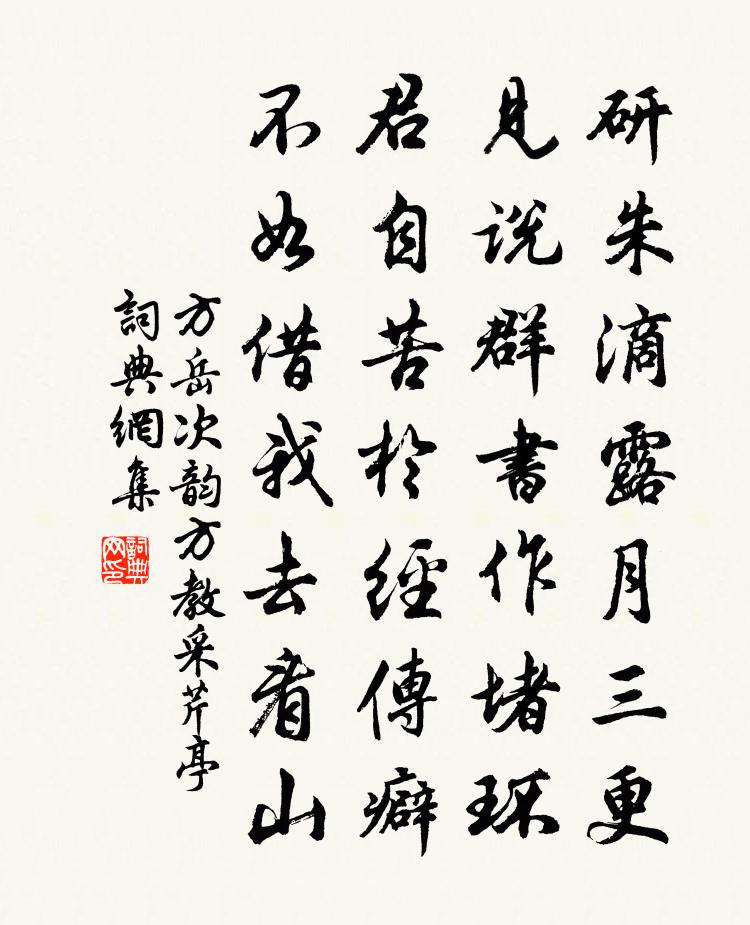 研朱滴露月三更
見説群書作堵環
君自苦於經傳癖
不如借我去看山
方岳次韵方教采芹亭
詞典網集
詞典網印